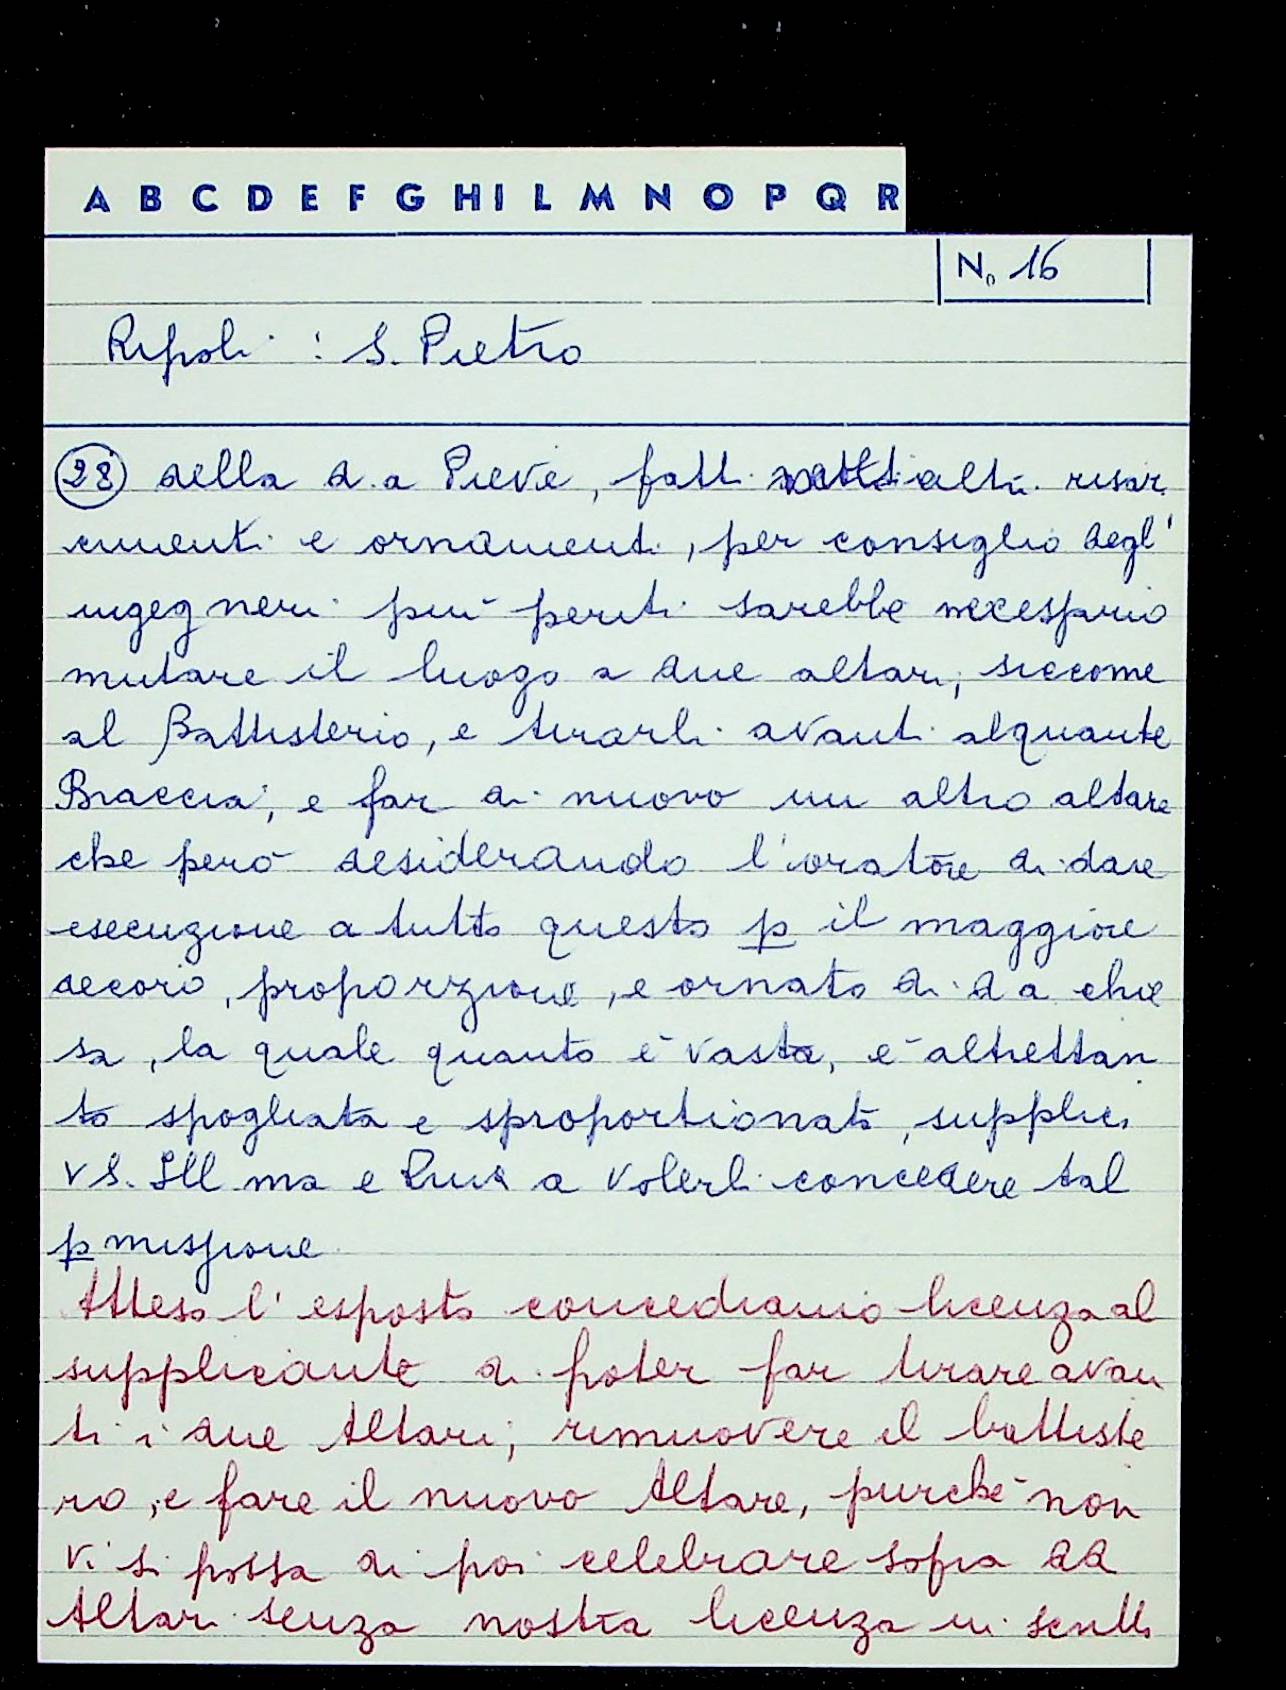 A B C D E F G H I L M N O P Q R
N. 16
Ripoli : S. Pietro
28 della d.a Pieve, fatti altri risar
cimenti e ornamenti, per consiglio degl'
ingegneri più periti sarebbe necessario
mutare il luogo a due altari, siccome
al Battisterio, e tirarli avanti alquante
Braccia, e far di nuovo un altro altare
che però desiderando l'oratore di dare
esecuzione a tutto questo p il maggiore
decoro, proporzione, e ornato di d a chie
sa, la quale quanto è vasta, è altrettan
to spogliata e sproportionata, supplica
VS. Ill ma e a volerli concedere tal
p missione
Atteso l'esposto concediamo licenza al
supplicante di poter far tirare avan
ti i due Altari, rimuovere il battiste
rio, e fare il nuovo Altare, purchè non
vi si possa di poi celebrare sopra dd
Altari senza nostra licenza in scritto